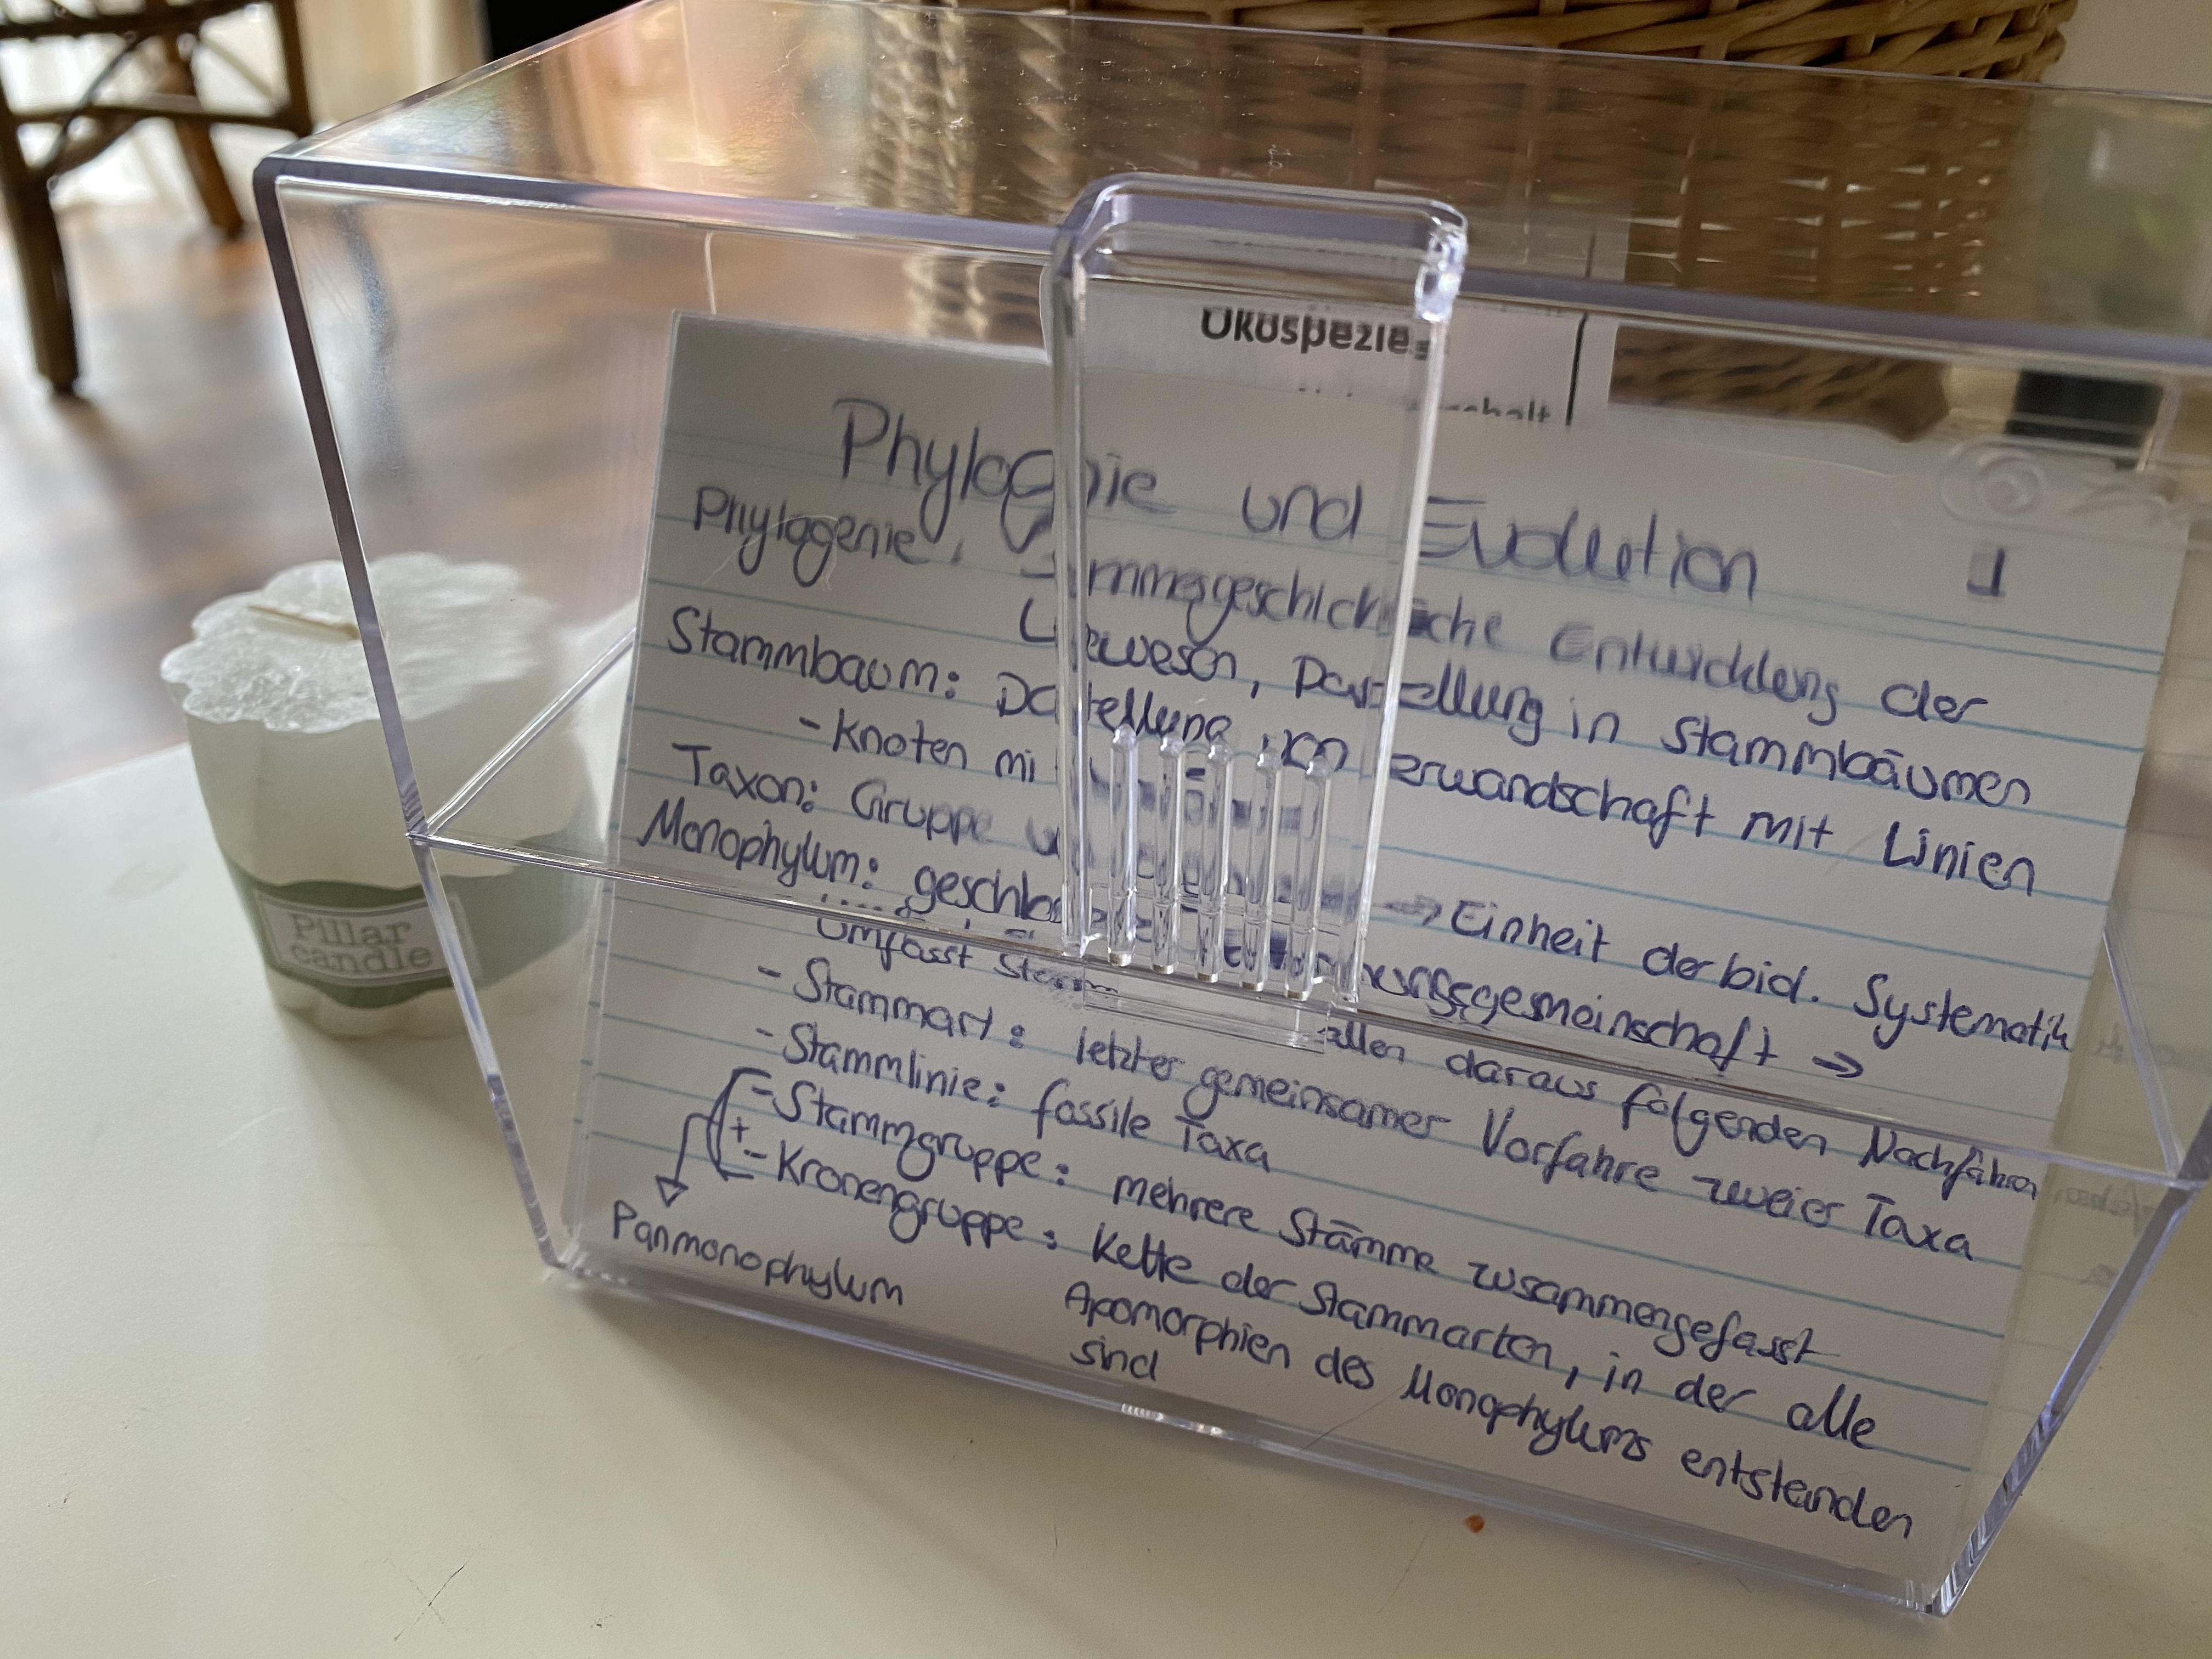 Ökospezies
Phylogenie und Evolution
1
Phylogenie: Stammesgeschichtliche Entwicklung der
Lebewesen, Darstellung in Stammbäumen
Stammbaum: Darstellung von Verwandschaft mit Linien
- Knoten mi
Taxon: Gruppe → Einheit der biol. Systematik
Monophylum: geschlossene gsgemeinschaft →
umfasst allen daraus folgenden Nachfahren
- Stammart: letzter gemeinsamer Vorfahre zweier Taxa
- Stammlinie: fossile Taxa
- Stammgruppe: mehrere Stämme zusammengefasst
+
- Kronengruppe: Kette der Stammarten, in der alle
Apomorphien des Monophylums entstanden
sind
Panmonophylum
Pillar
candle